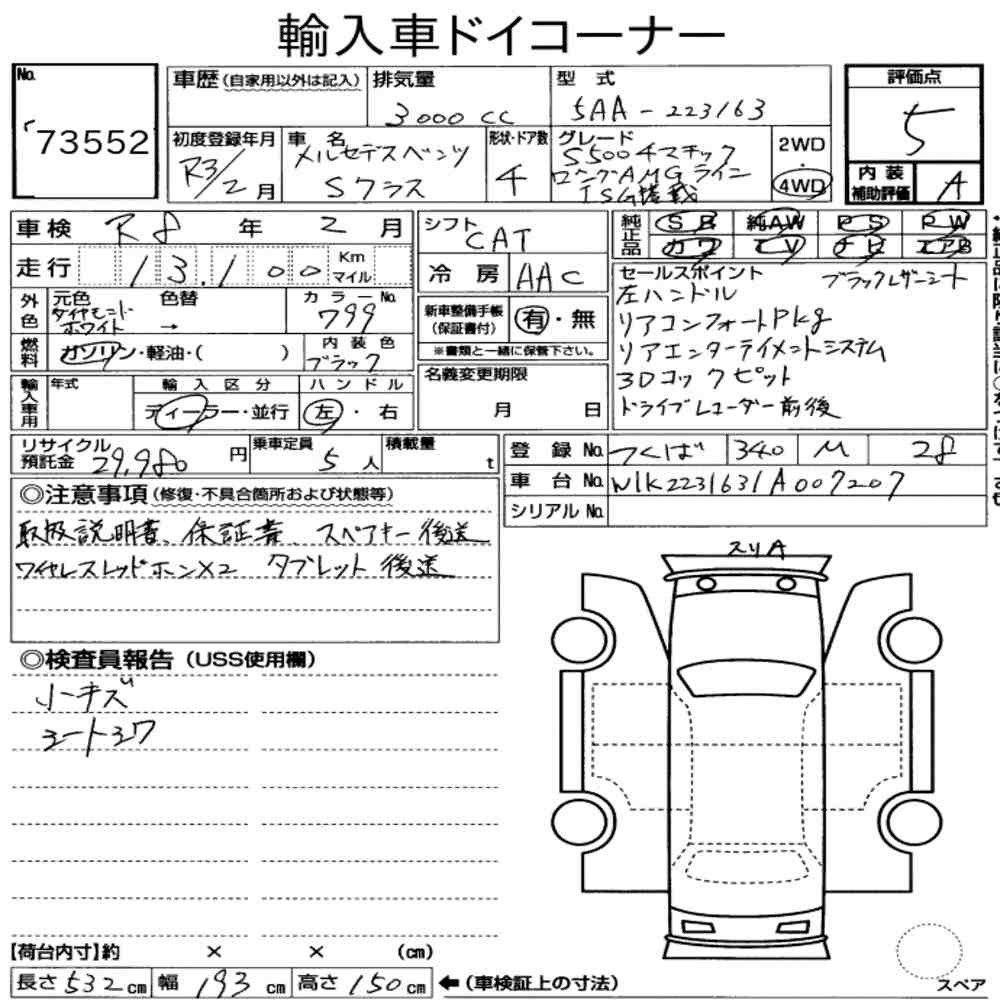 輸入車ドイコーナー
No.
73552
車歴(自家用以外は記入)
排気量
3000cc
型式
5AA-223163
評価点
5
内装補助評価
A
初度登録年月
R3/2月
車名
メルセデスベンツ
Sクラス
形状・ドア数
4
グレード
S500 4マチック
ロングAMGライン
ISG搭載
2WD
・
4WD
車検 R8年2月
シフト
CAT
純正品
SR 純AW PS PW
カワ TV ナビ エアB
走行 13,100 Km マイル
冷房 AAC
セールスポイント ブラックレザーシート
左ハンドル
リアコンフォートPkg
リアエンターテイメントシステム
3Dコックピット
ドライブレコーダー前後
外色
元色
ダイヤモンド
ホワイト
色替
→
カラーNo.
799
新車整備手帳
(保証書付)
有・無
※書類と一緒に保管下さい。
燃料
ガソリン・軽油・( )
内装色
ブラック
名義変更期限
月 日
輸入車用
年式
輸入区分
ディーラー・並行
ハンドル
左・右
リサイクル預託金 29,980円
乗車定員 5人
積載量 t
登録No. つくば 340 M 28
車台No. W1K2231631A007207
シリアルNo.
◎注意事項(修復・不具合箇所および状態等)
取扱説明書、保証書、スペアキー後送
ワイヤレスヘッドホン×2 タブレット後送
スリA
◎検査員報告(USS使用欄)
小キズ
シートシワ
【荷台内寸】約 × × (cm)
長さ532cm 幅193cm 高さ150cm ←(車検証上の寸法)
スペア